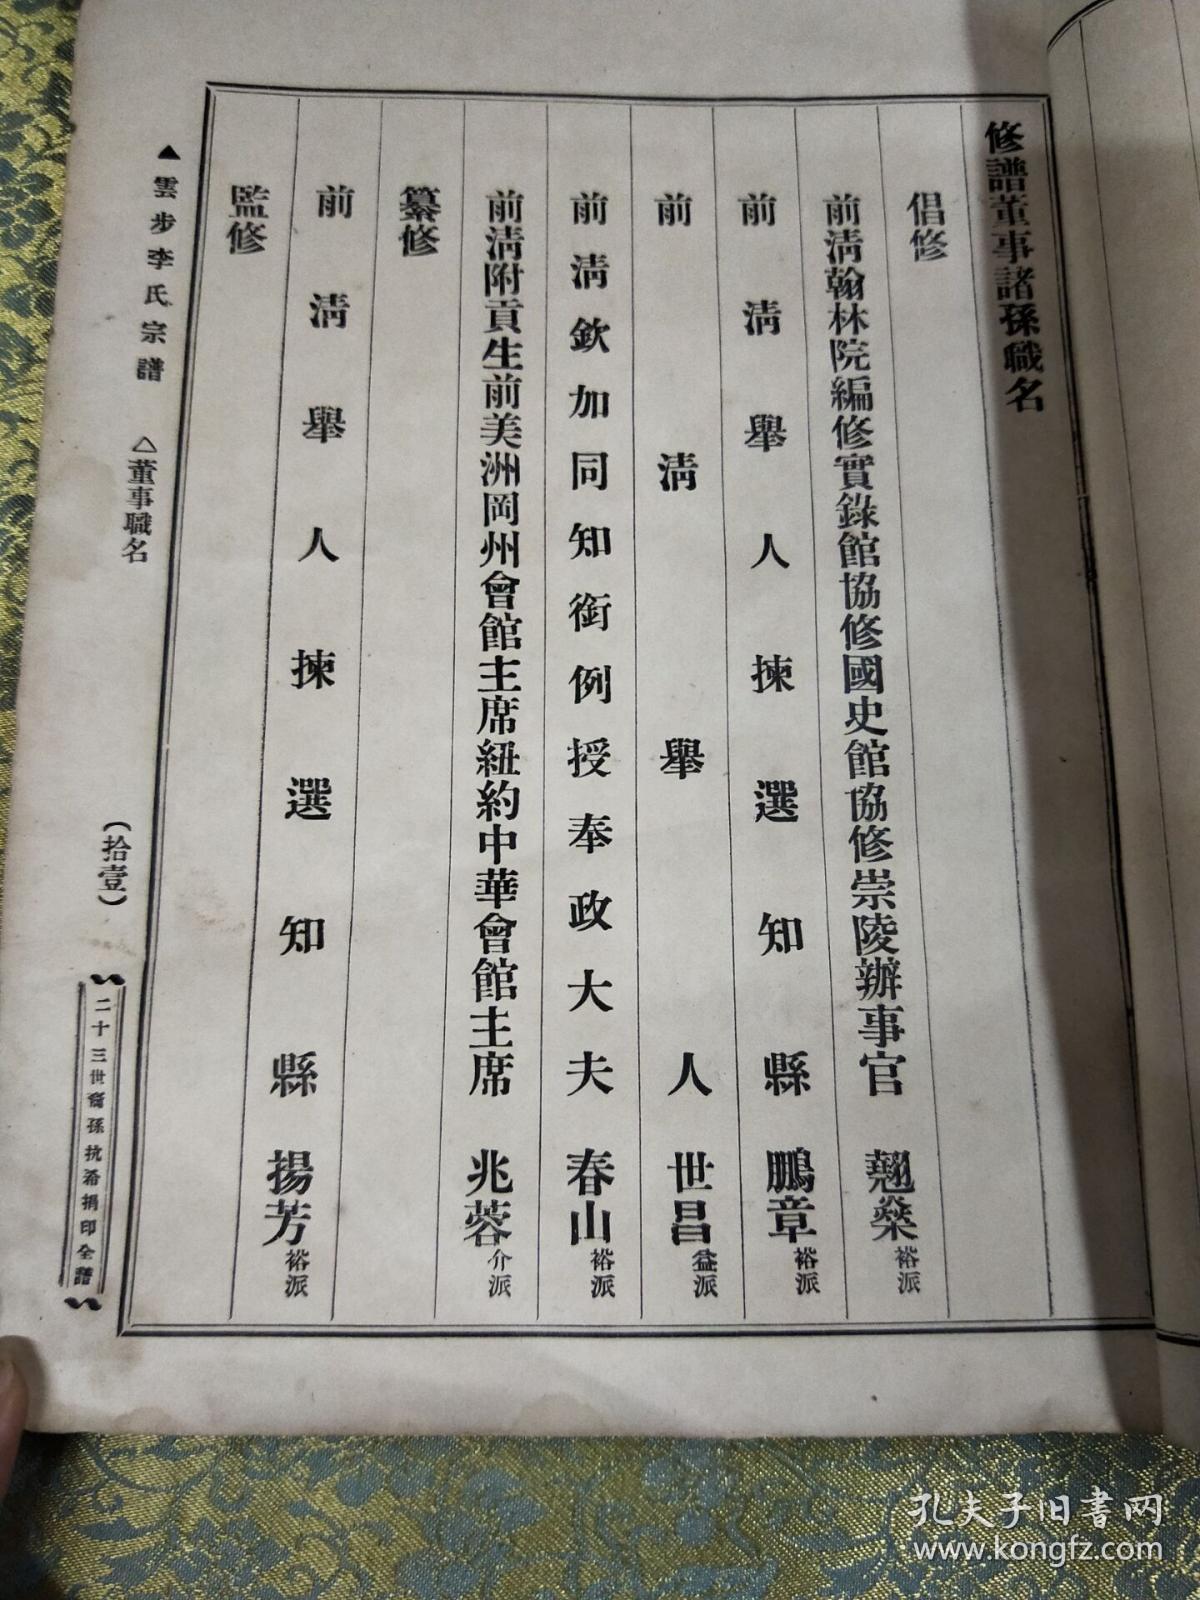 修譜董事諸孫職名
倡修
前清翰林院編修實錄館協修國史館協修崇陵辦事官 翹燊 裕派
前清舉人揀選知縣 鵬章 裕派
前清舉人 世昌 益派
前清欽加同知銜例授奉政大夫 春山 裕派
前清附貢生前美洲岡州會館主席紐約中華會館主席 兆蓉 介派
纂修
前清舉人揀選知縣 揚芳 裕派
監修
▲雲步李氏宗譜 △董事職名 (拾壹)
二十三世裔孫抗希捐印全譜
孔夫子旧书网
www.kongfz.com